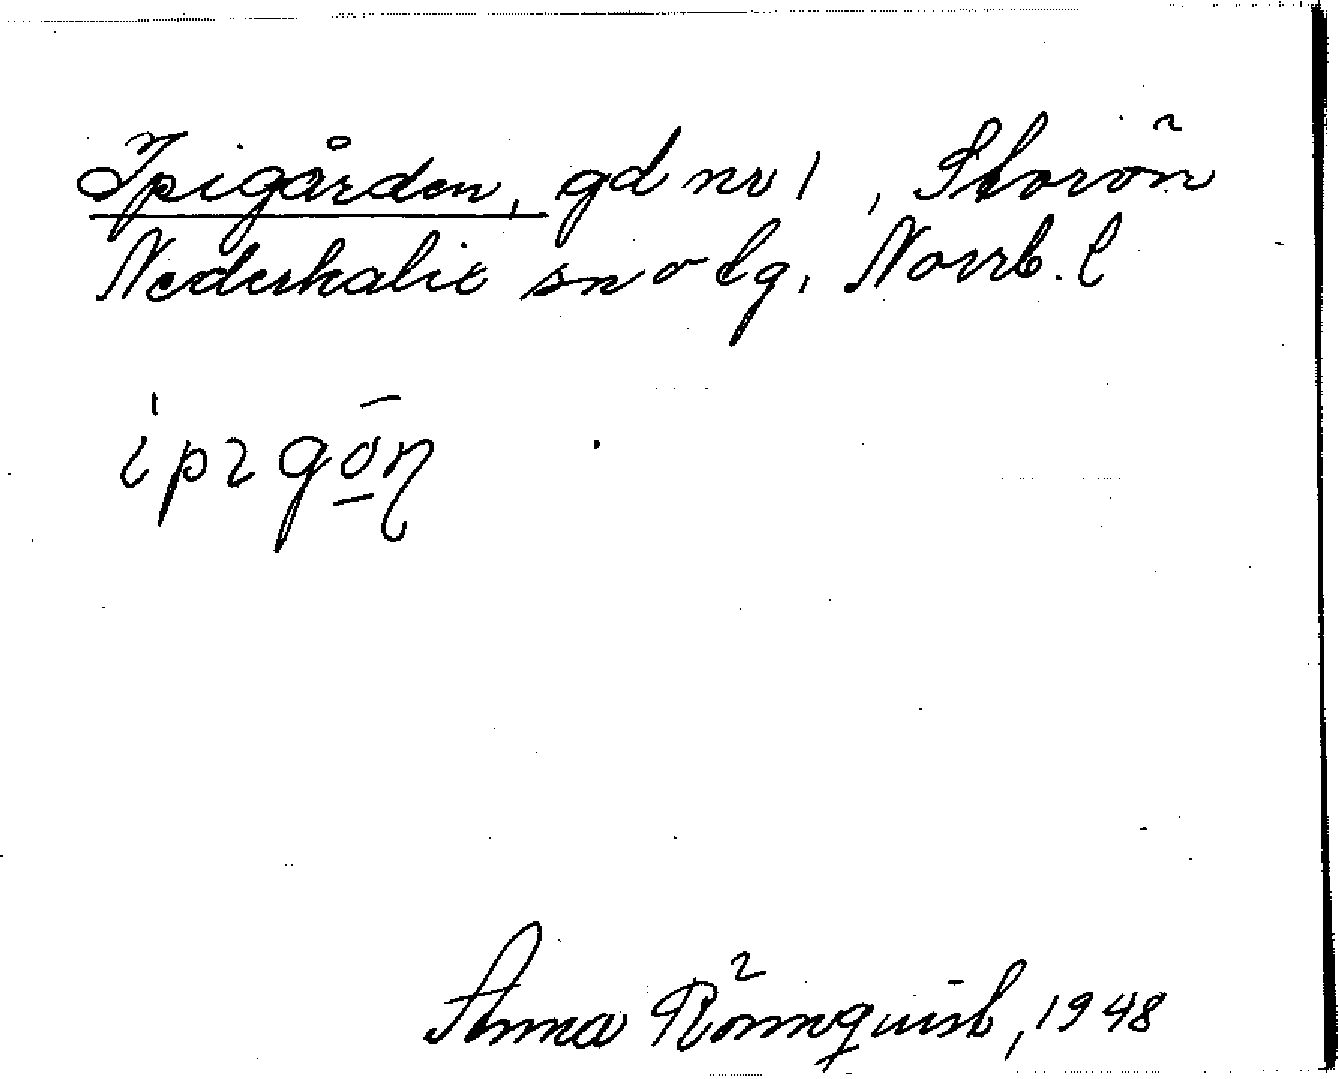 Ipigården, gd nr 1, Storön
Nederkalix sn o tg, Norrb. l
ipigōn̥
Anna Rönnquist, 1948